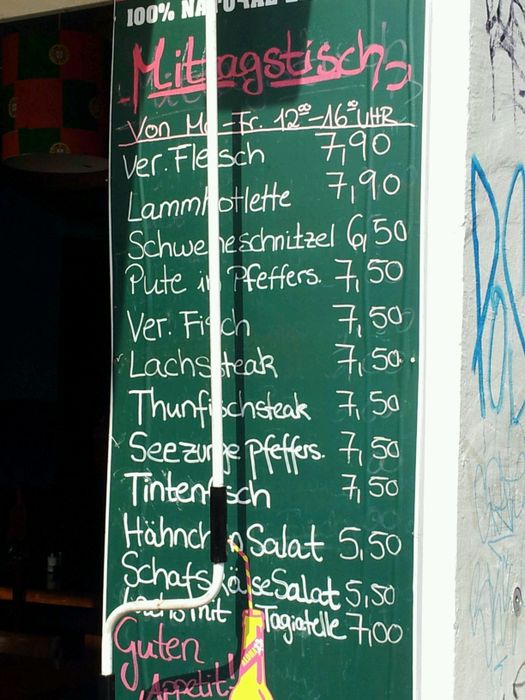 100% NATURAL
Mittagstisch
Von Mo-Fr. 12⁰⁰-16⁰⁰ UHR
Ver. Fleisch 7,90
Lammkotlette 7,90
Schweineschnitzel 6,50
Pute in Pfeffers. 7,50
Ver. Fisch 7,50
Lachssteak 7,50
Thunfischsteak 7,50
Seezunge Pfeffers. 7,50
Tintenfisch 7,50
Hähnchen Salat 5,50
Schafskäse Salat 5,50
Lachs mit Tagiatelle 7,00
Guten
Appetit!